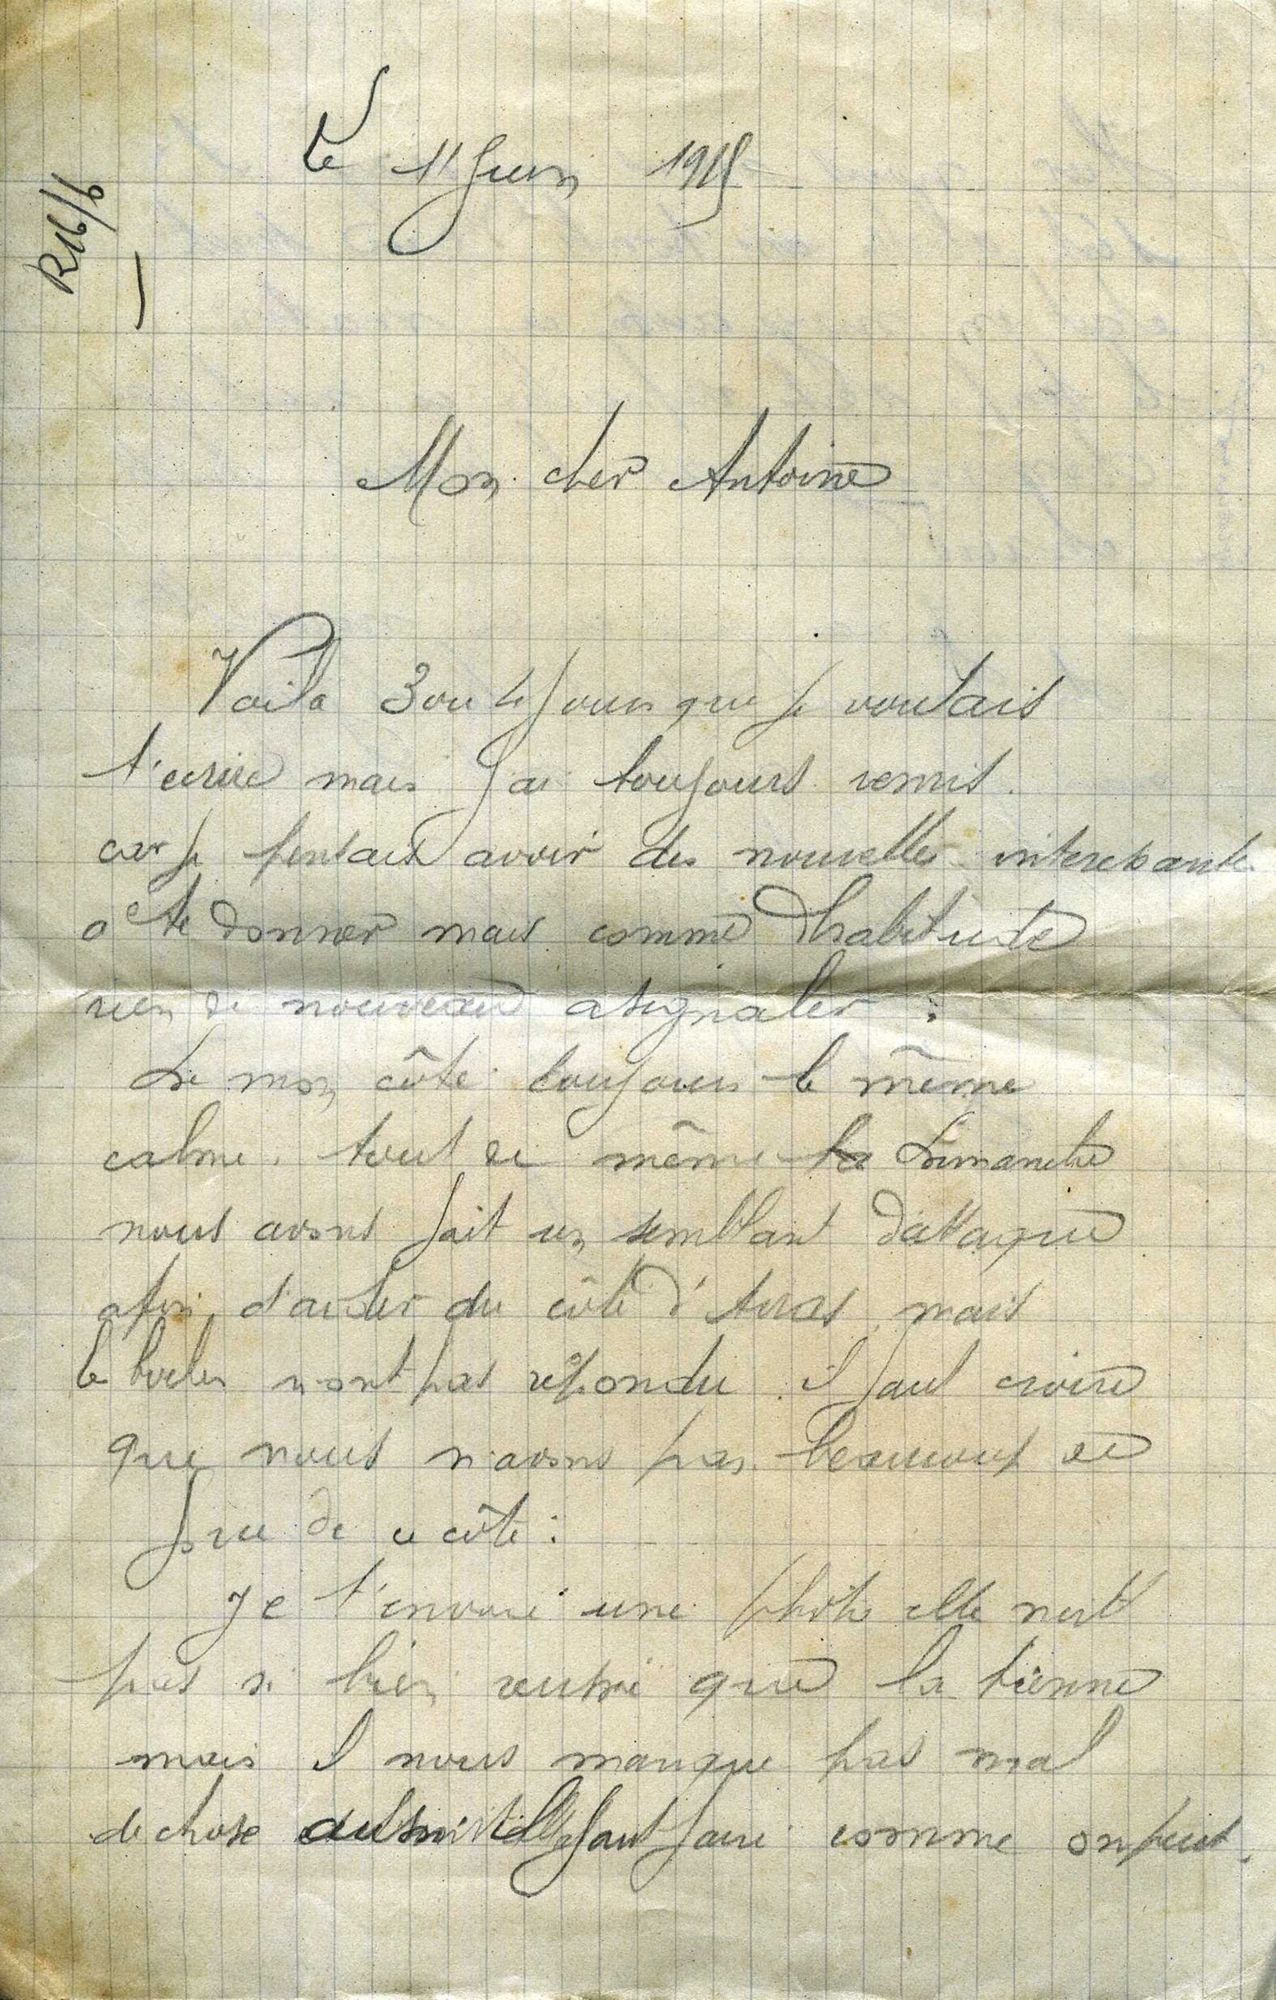 R16/6
Le 11 Juin 1915
Mon cher Antoine
Voila 3 ou 4 Jours que Je voulais
t'ecrire mais J'ai toujours remis.
car Je pensais avoir des nouvelles interessante
a te donner mais comme d'habitude
rien de nouveau a signaler :
De mon côté toujours le même
calme. tout de même Dimanche
nous avons fait un semblant d'attaque
afin d'aider du côté d'Arras mais
le boches n'ont pas répondu il faut croire
que nous n'avons pas beaucoup de
force de ce côté :
Je t'envoie une photo elle n'est
pas si bien reussie que la tienne
mais il nous manque pas mal
de chose faut faire comme on peut.